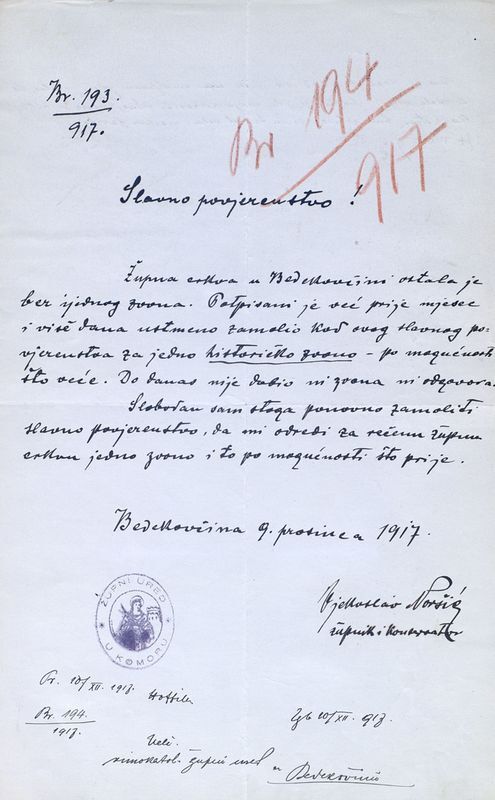 Br. 193.
917.
Br 194
917
Slavno povjerenstvo!
Župna crkva u Bedekovčini ostala je
bez ijednog zvona. Potpisani je već prije mjesec
i više dana ustmeno zamolio kod ovog slavnog po-
vjerenstva za jedno historičko zvono - po mogućnosti
što veće. Do danas nije dobio ni zvona ni odgovora.
Slobodan sam stoga ponovno zamoliti
slavno povjerenstvo, da mi odredi za rečenu župnu
crkvu jedno zvono i to po mogućnosti što prije.
Bedekovčina 9. prosinca 1917.
ŽUPNI URED
U KOMORU
Vjekoslav Noršić
župnik i konservator
Pr. 10/XII. 1917.
Br. 194.
1917.
Zgb 10/XII. 917.
Velč.
rimokatol. župni ured
Bedekovčini